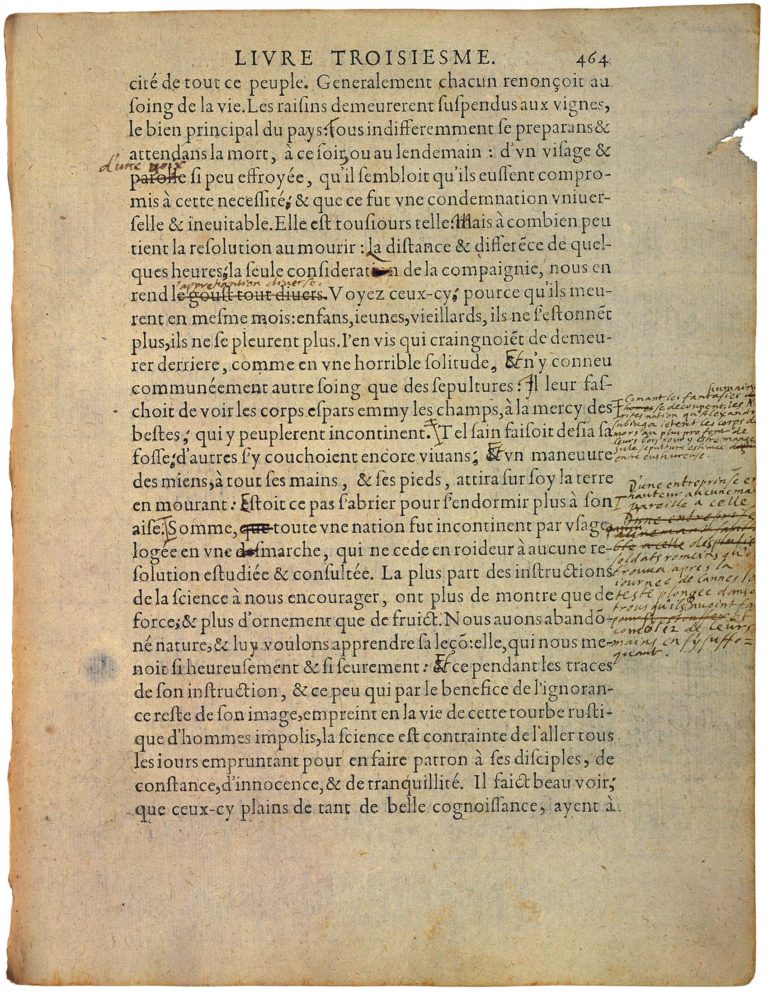 LIVRE TROISIESME. 464
cité de tout ce peuple. Generalement chacun renonçoit au
soing de la vie. Les raisins demeurerent suspendus aux vignes,
le bien principal du pays: tous indifferemment se preparans &
attendans la mort, à ce soir, ou au lendemain : d'vn visage &
d'une voix
parolle si peu effroyée, qu'il sembloit qu'ils eussent compro-
mis à cette necessité, & que ce fut vne condemnation vniuer-
selle & ineuitable. Elle est tousiours telle. Mais à combien peu
tient la resolution au mourir : la distance & differẽce de quel-
ques heures, la seule consideration de la compaignie, nous en
l'apprehantion diverse.
rend le goust tout diuers. Voyez ceux-cy, pource qu'ils meu-
rent en mesme mois: enfans, ieunes, vieillards, ils ne s'estonnẽt
plus, ils ne se pleurent plus. I'en vis qui craingnoiẽt de demeu-
rer derriere, comme en vne horrible solitude, Et n'y conneu
communéement autre soing que des sepultures : Il leur fas-
choit de voir les corps espars emmy les champs, à la mercy des
bestes, qui y peuplerent incontinent. Tel sain faisoit desia sa
fosse, d'autres s'y couchoient encore viuans, Et vn maneuure
des miens, à tout ses mains, & ses pieds, attira sur soy la terre
en mourant : Estoit ce pas s'abrier pour s'endormir plus à son
aise. Somme, que toute vne nation fut incontinent par vsage
logée en vne desmarche, qui ne cede en roideur à aucune re-
solution estudiée & consultée. La plus part des instructions
de la science à nous encourager, ont plus de montre que de
force, & plus d'ornement que de fruict. Nous auons abandõ-
né nature, & luy voulons apprendre sa leçõ: elle, qui nous me-
noit si heureusement & si seurement : Et ce pendant les traces
de son instruction, & ce peu qui par le benefice de l'ignoran-
ce reste de son image, empreint en la vie de cette tourbe rusti-
que d'hommes impolis, la science est contrainte de l'aller tous
les iours empruntant pour en faire patron à ses disciples, de
constance, d'innocence, & de tranquillité. Il faict beau voir,
que ceux-cy plains de tant de belle cognoissance, ayent à
humain
les fantasies
se decoupent, les
nation qu'Alexandr
subjuga jetent les corps
au plus profont de
leurs bois pour y estre
sepulture
entre eus
D'une entreprinse
hauteur aucunemant
pareille a celle
des
soldats romeins qu'
trouva apres la
journee de cannes la
teste plongee dans
trous qu'ils avoint
et
comblez de leurs
mains en s'y suffo
quant.